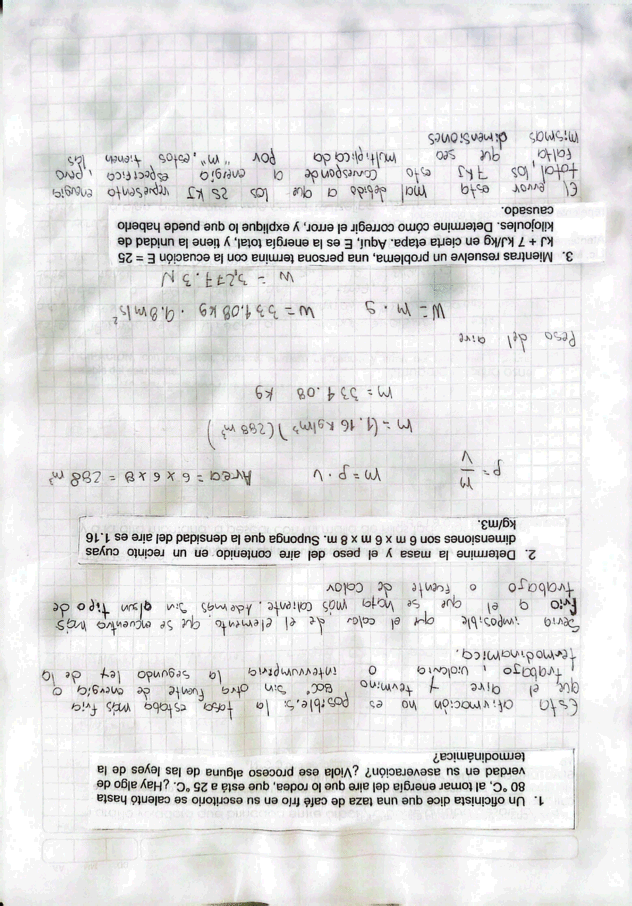 1. Un oficinista dice que una taza de café frío en su escritorio se calentó hasta
80 °C, al tomar energía del aire que lo rodea, que está a 25 °C. ¿Hay algo de
verdad en su aseveración? ¿Viola ese proceso alguna de las leyes de la
termodinámica?
Esta afirmación no es posible, si la tasa estaba más fria
que el aire y termino 80C° sin otra fuente de energia o
trabazo, violaria o interrumpiria la segundo ley de la
termodinamica.
Seria imposible que el calor de el elemento que se encuentra más
Frio a el que se haya más caliente. Además sin algun tipo de
trabazo o fuente de calor
2. Determine la masa y el peso del aire contenido en un recinto cuyas
dimensiones son 6 m x 6 m x 8 m. Suponga que la densidad del aire es 1.16
kg/m3.
ρ = m/v m = ρ · v Area = 6 x 6 x 8 = 288 m³
m = (1.16 kg/m³)(288 m³)
m = 334.08 kg
Peso del aire
W = m · g w = 334.08 kg · 9.8 m/s²
w = 3,277.3 N
3. Mientras resuelve un problema, una persona termina con la ecuación E = 25
kJ + 7 kJ/kg en cierta etapa. Aquí, E es la energía total, y tiene la unidad de
kilojoules. Determine cómo corregir el error, y explique lo que puede haberlo
causado.
El error esta mal debido a que los 25 KJ representa energia
total, los 7KJ esto corresponde a energia especifica, pero
falta que sea multiplicada por "m", estos tienen las
mismas dimensiones